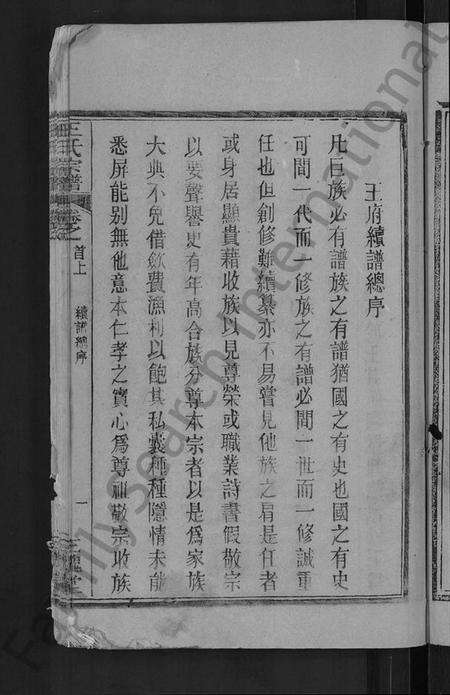 王府續譜總序
凡巨族必有譜族之有譜猶國之有史也國之有史
可間一代而一修族之有譜必間一世而一修誠重
任也但創修難續纂亦不易嘗見他族之肩是任者
或身居顯貴藉收族以見尊榮或職業詩書假敬宗
以要聲譽更有年高合族分尊本宗者以是爲家族
大典不免借歛費漁利以飽其私囊種種隱情未能
悉屏能别無他意本仁孝之實心爲尊祖敬宗收族
王氏宗譜
卷之首上
續譜總序
一
堂
FamilySearch International